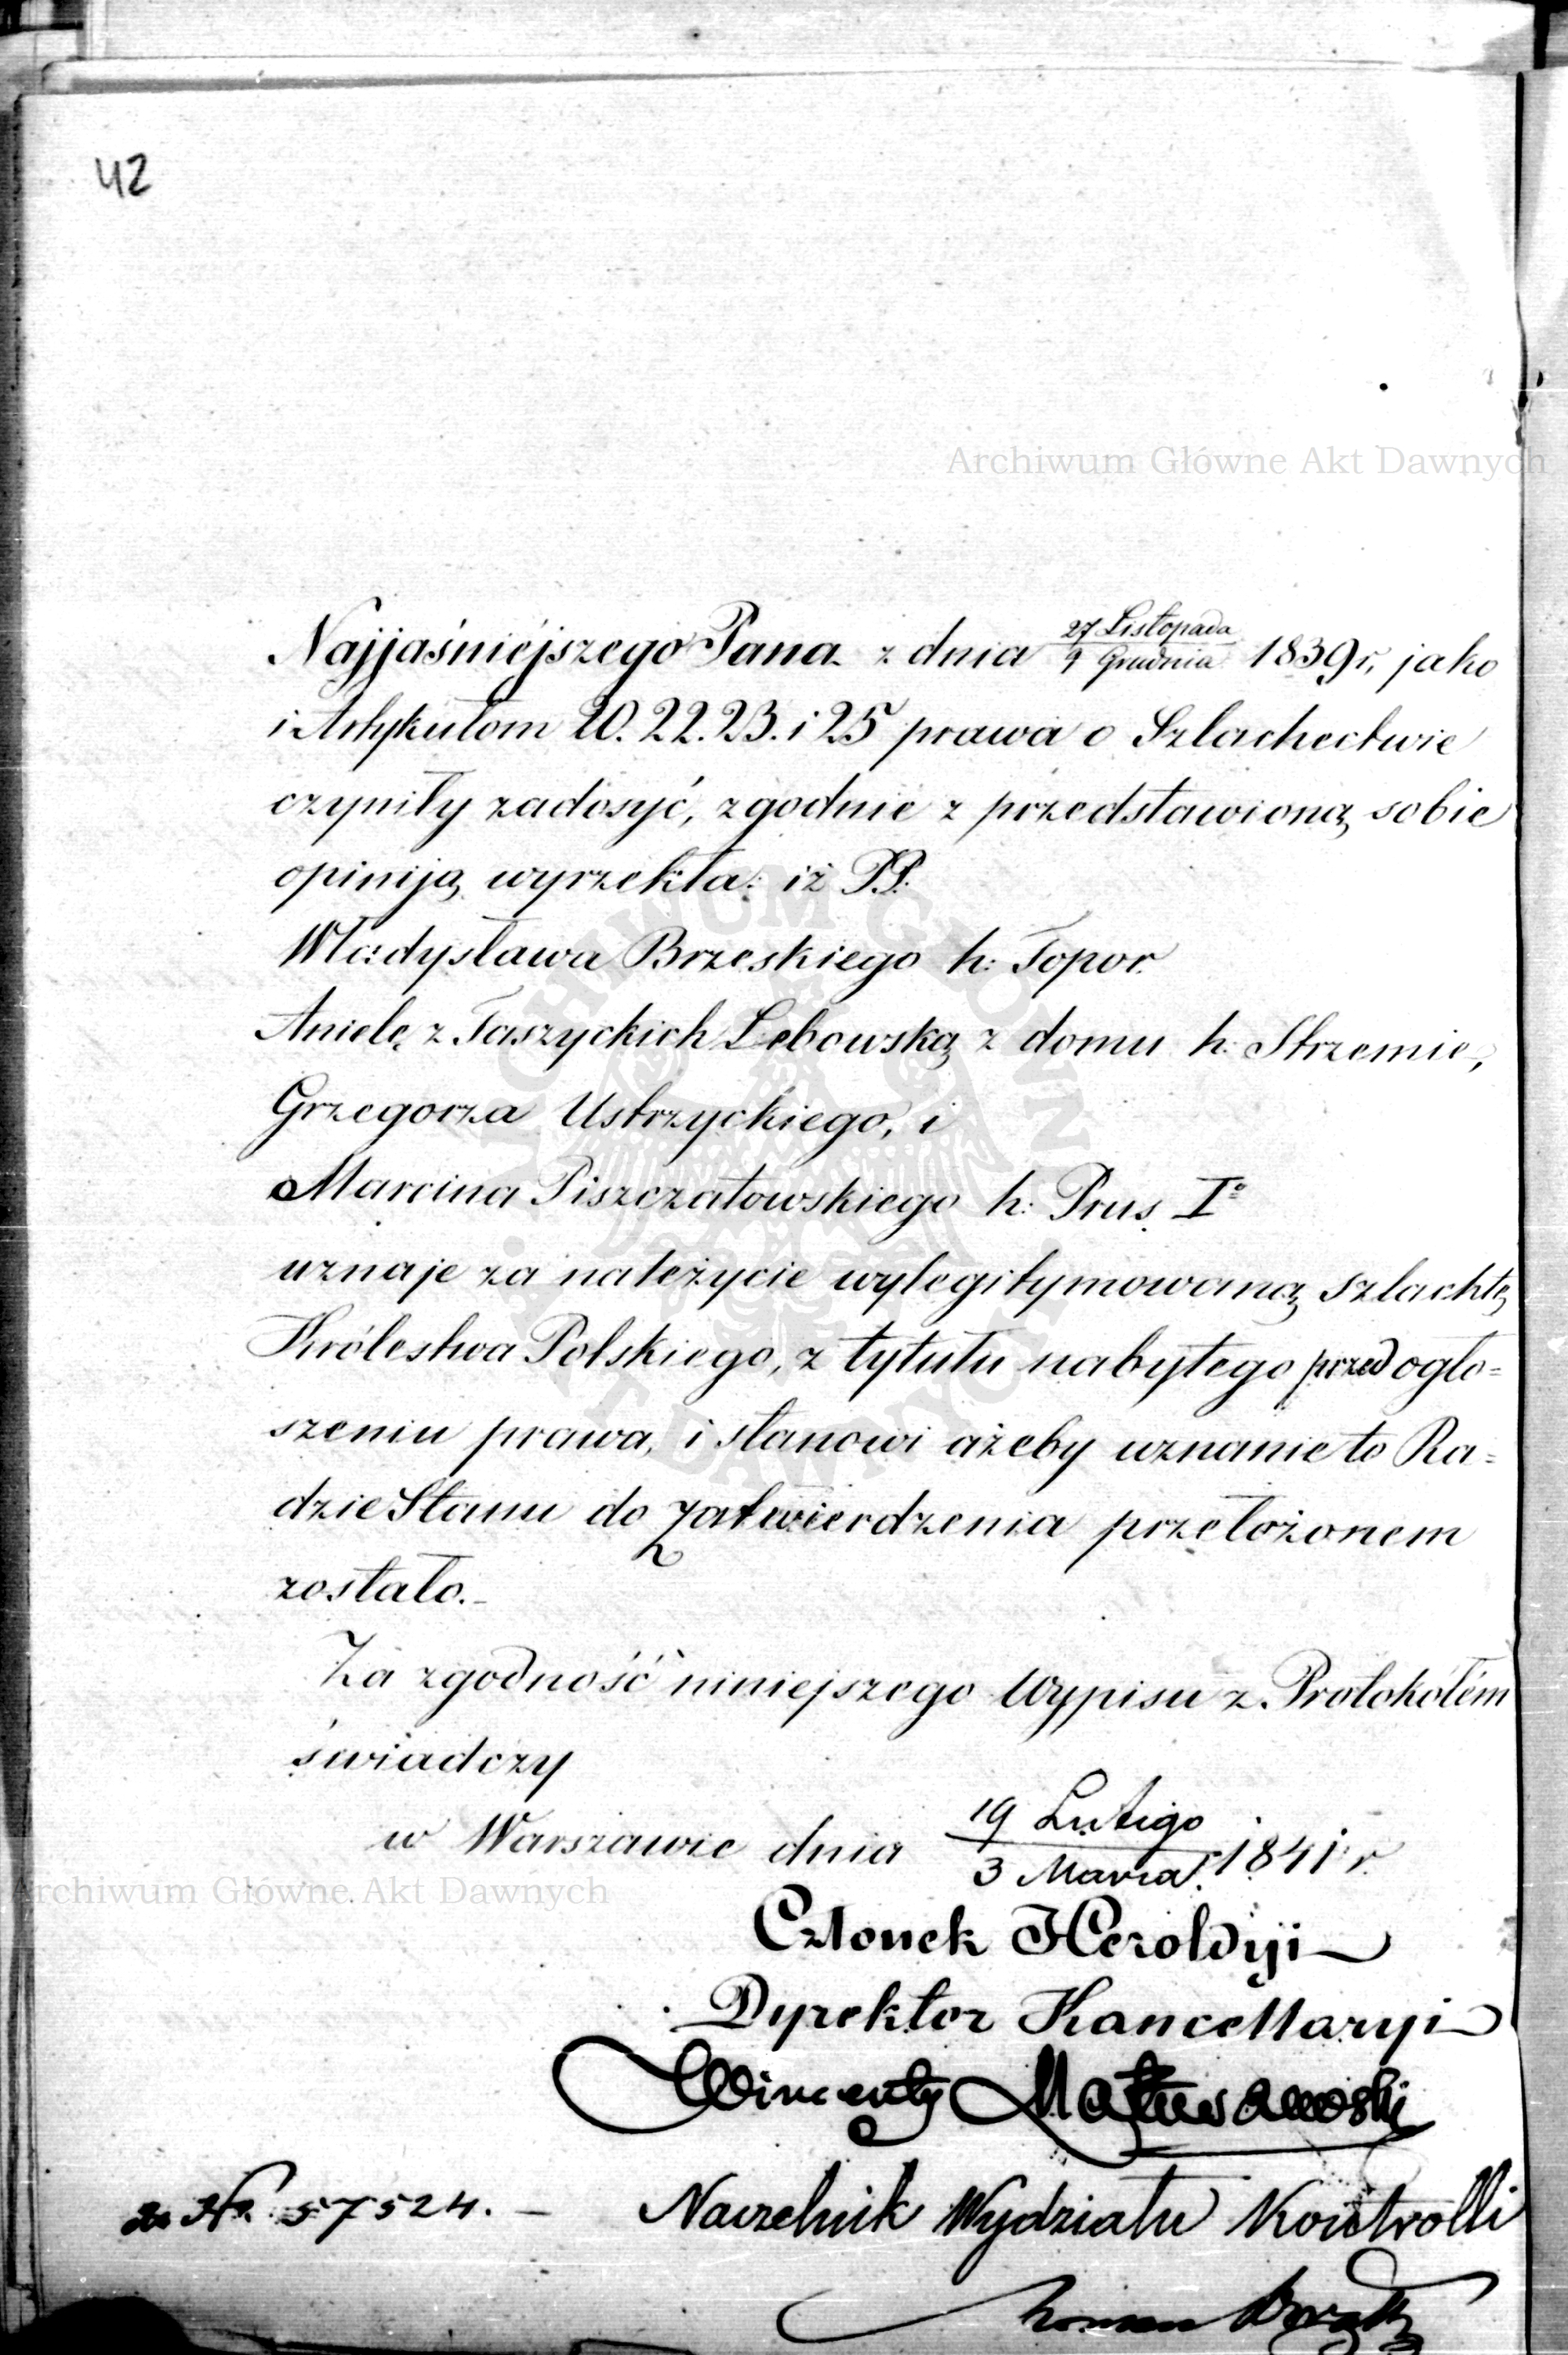 42
Archiwum Główne Akt Dawnych
Najjaśniéjszego Pana z dnia 27 Listopada / 9 Grudnia 1839 r, jako
i Artykułom 20. 22. 23. i 25 prawa o Szlachectwie
czyniły zadosyć, zgodnie z przedstawioną sobie
opinją wyrzekła: iż PP.
Władysława Brzeskiego h: Topor.
Anielę z Taszyckich Łebowską z domu h: Strzemie,
Grzegorza Ustrzyckiego, i
Marcina Piszczatowskiego h: Prus I°
uznaje za należycie wylegitymowaną szlachtę
Królestwa Polskiego, z tytułu nabytego przed ogło=
szeniu prawa, i stanowi ażeby uznanie to Ra=
dzie Stanu do zatwierdzenia przełożonem
zostało.-
Za zgodność niniejszego Wypisu z Protokółem
świadczy
w Warszawie dnia 19 Lutego / 3 Marca 1841 r.
Archiwum Główne Akt Dawnych
Członek Heroldyi
Dyrektor Kancellaryi
Wincenty Matuszewski
Nr 57524. —
Naczelnik Wydziału Kontrolli
Roman
ARCHIWUM GŁÓWNE AKT DAWNYCH